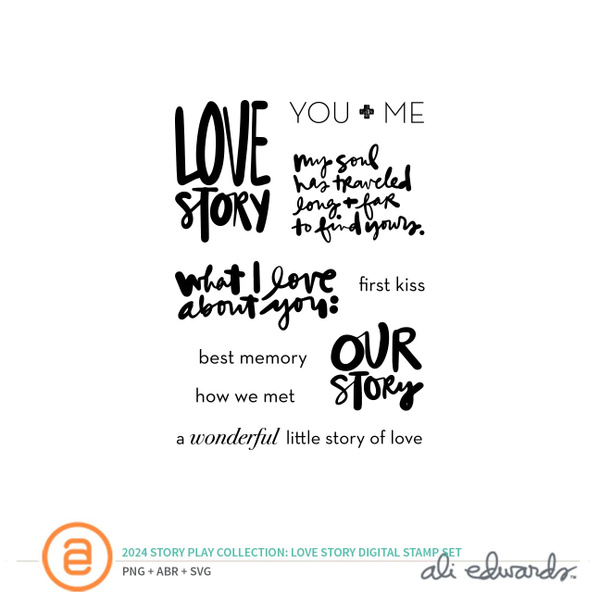 LOVE
STORY
YOU + ME
my soul
has traveled
long + far
to find yours.
what I love
about you:
first kiss
OUR
STORY
best memory
how we met
a wonderful little story of love
ae
2024 STORY PLAY COLLECTION: LOVE STORY DIGITAL STAMP SET
PNG + ABR + SVG
ali edwards™